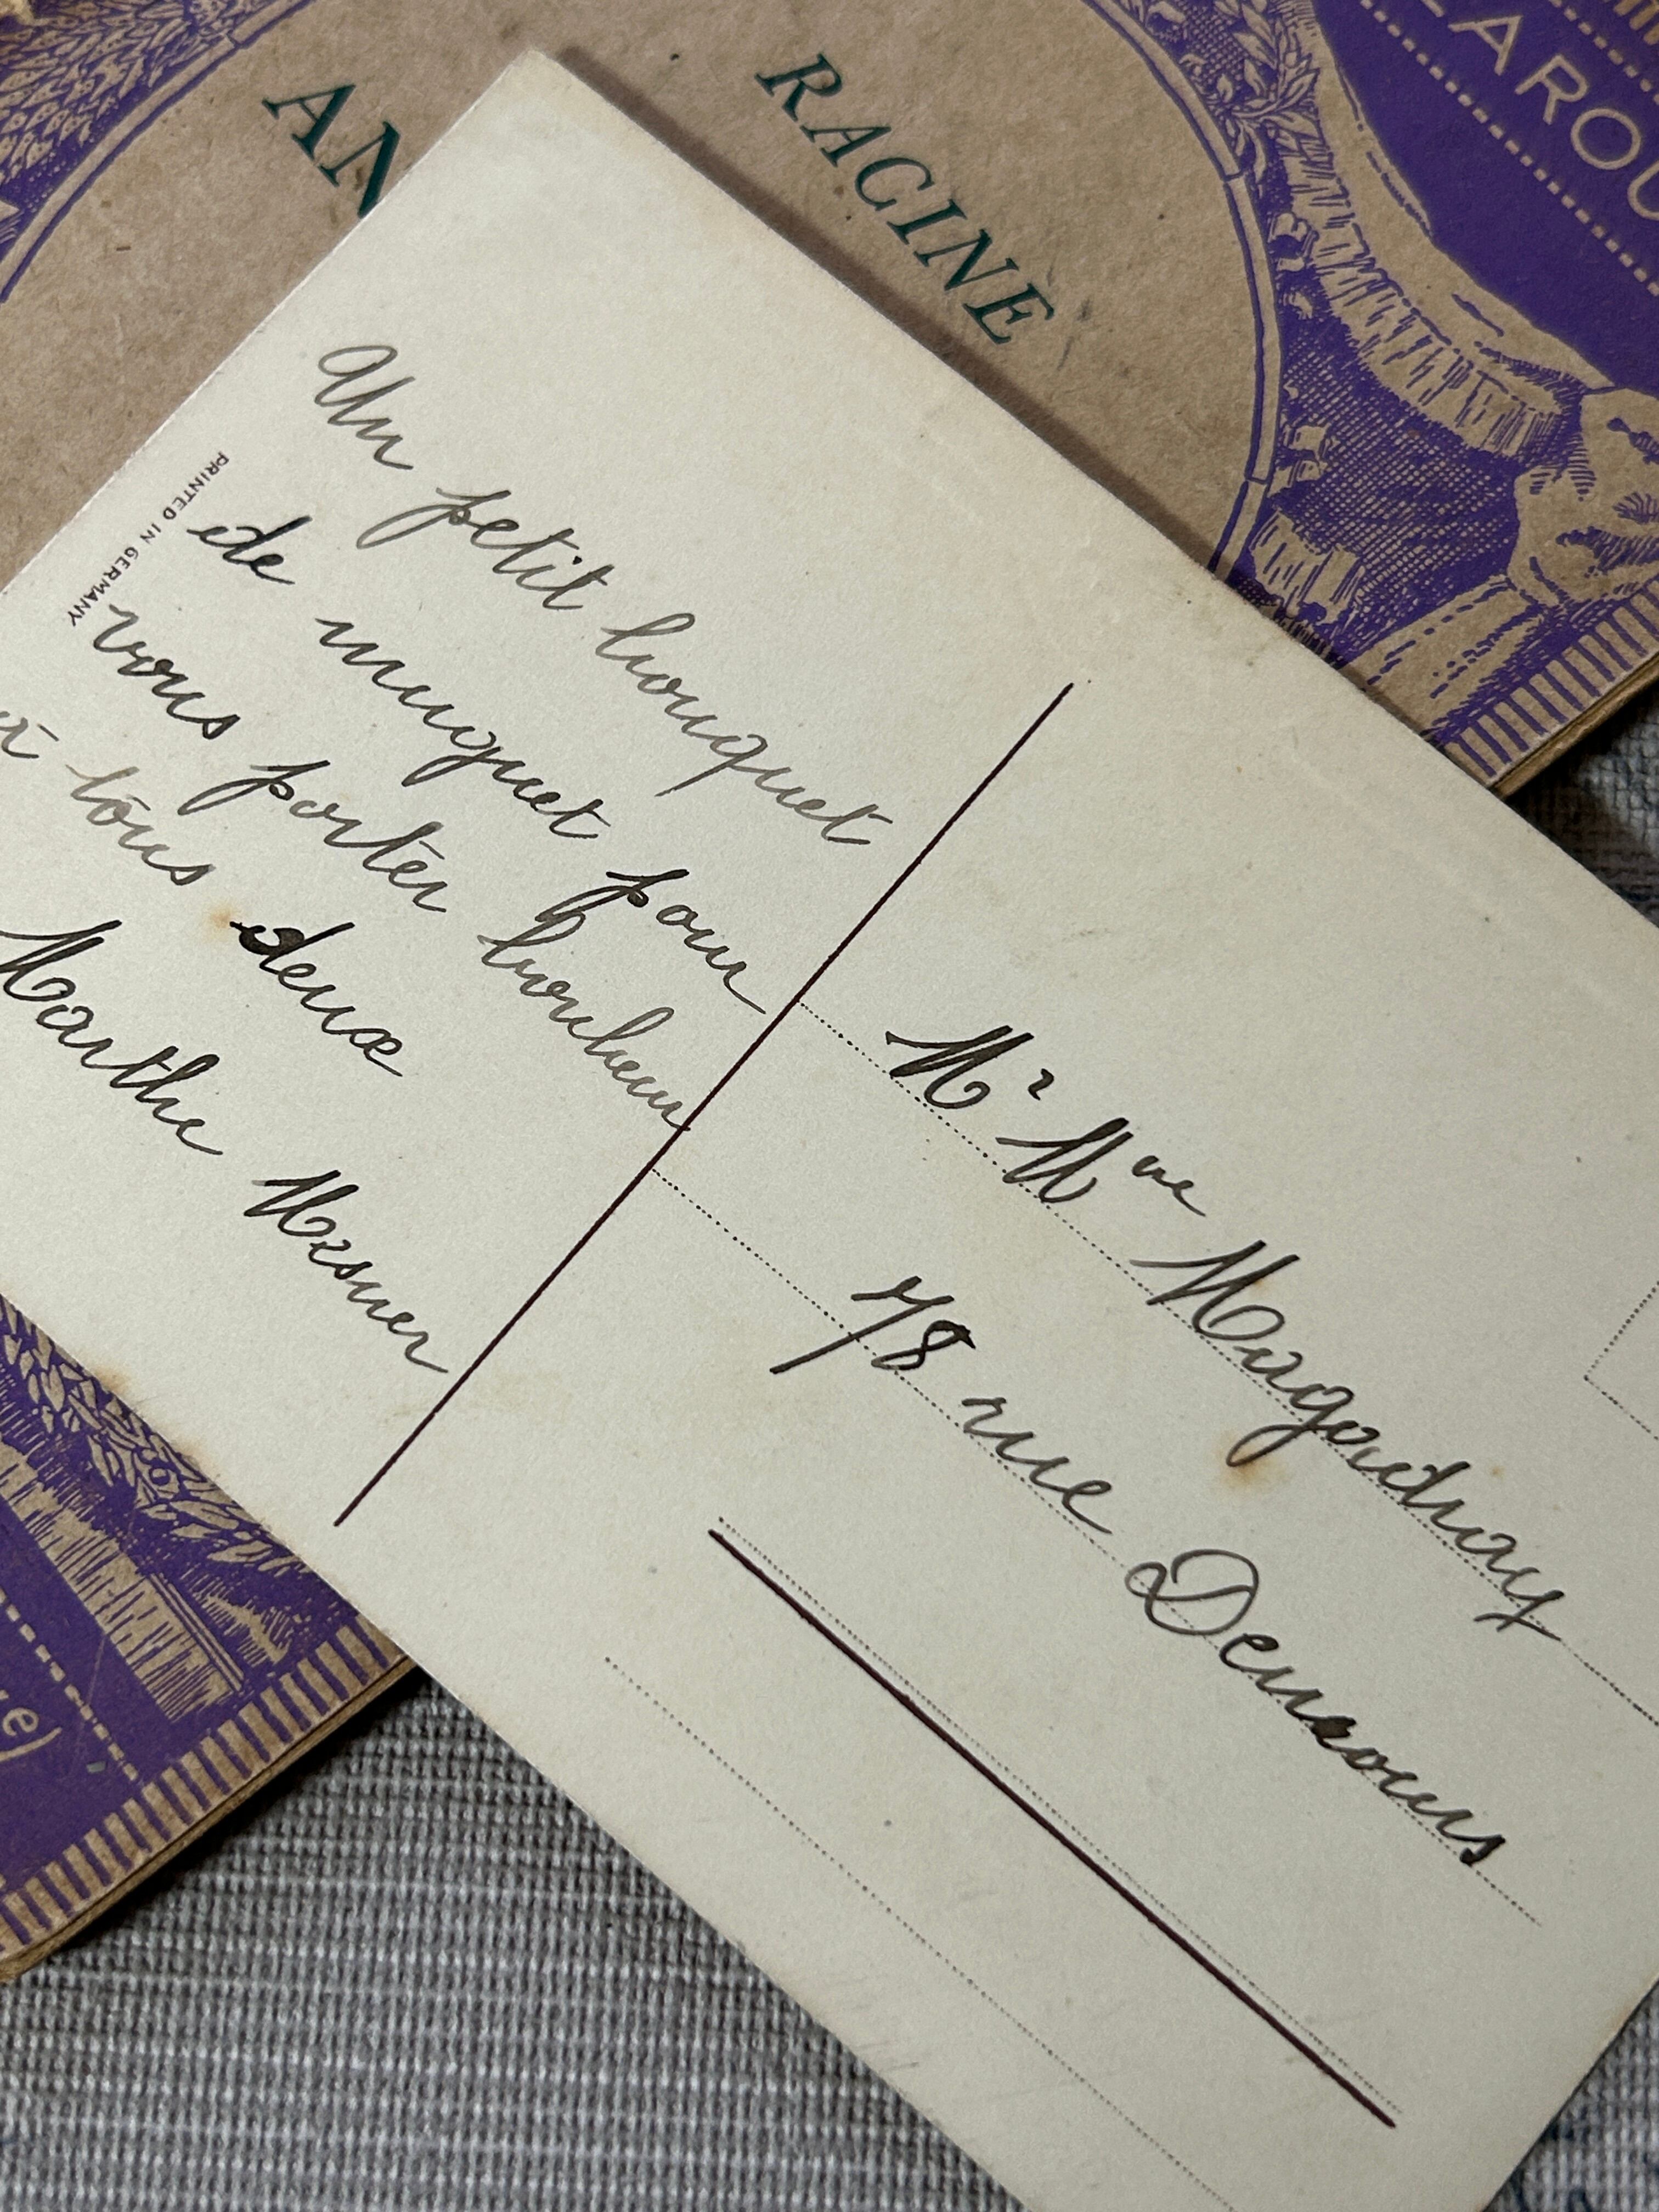 AN
RACINE
LAROU
PRINTED IN GERMANY
Un petit bouquet
de muguet pour
vous porter bonheur
à tous deux
Marthe Mesner
Mr Mme
78 rue Demours